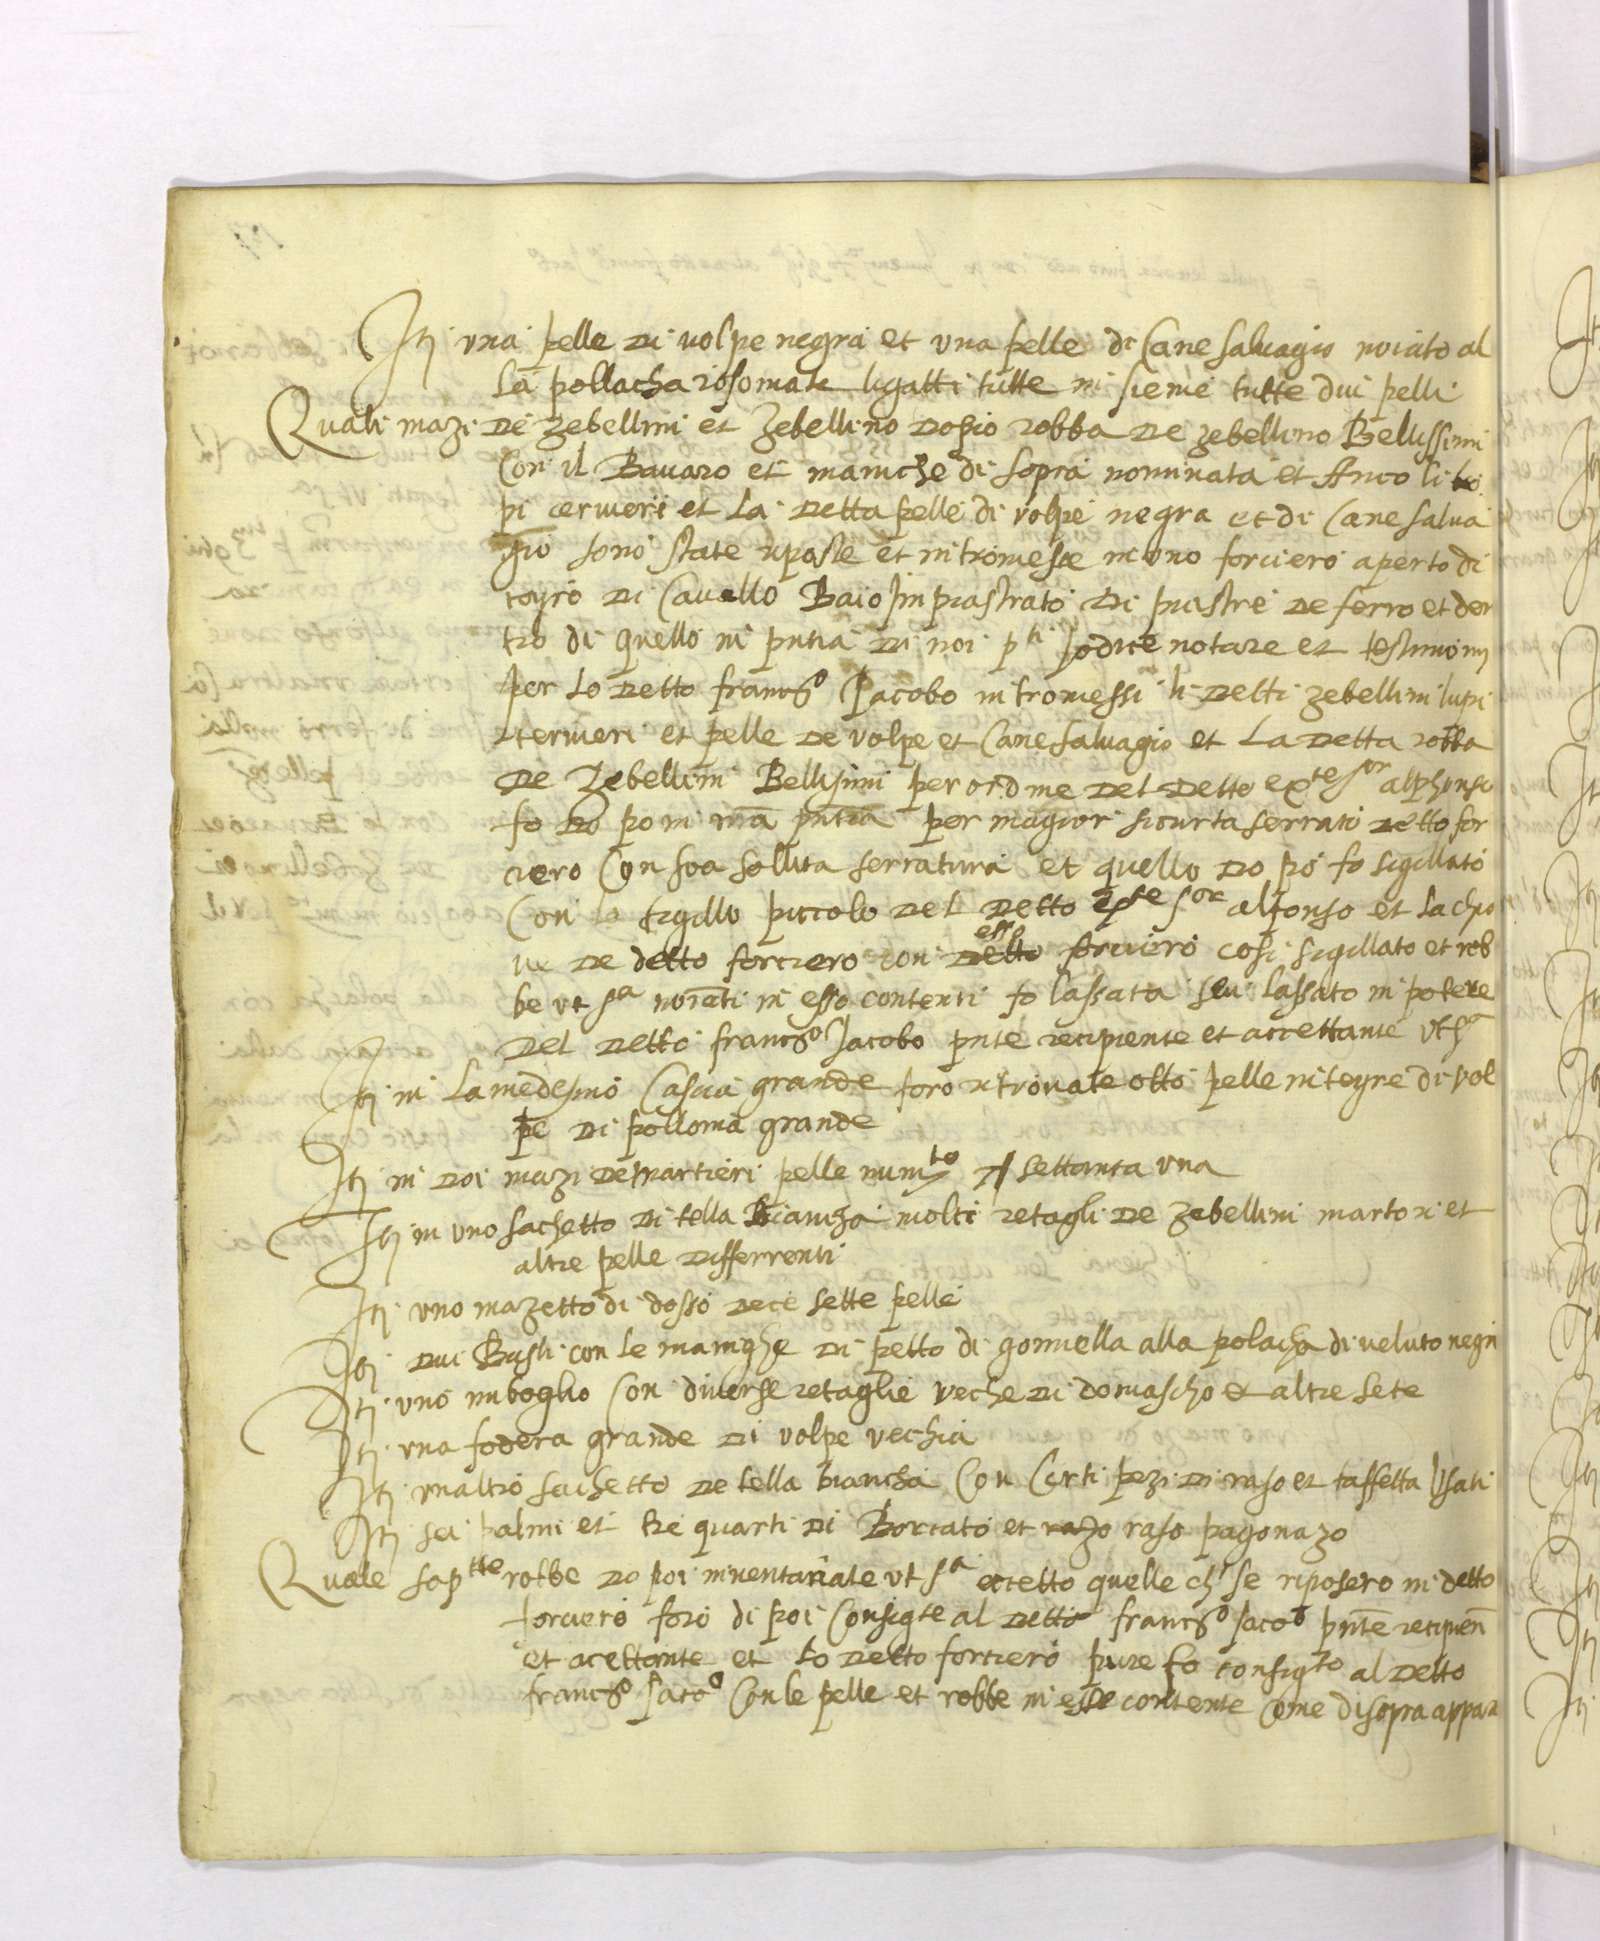 Itj una pelle di volpe negra et una pelle di Cane salvagio noiato al
la pollacha rosomake ligatti tutte insieme tutte dui pelli
Quali mazi de zebellini et zebellino dopio robba de zebellino Bellissimi
Con il Bavaro et maniche di sopra nominata et Anco li lu
pi cervieri et la detta pelle di volpe negra et di Cane salva
gio sono state riposte et intromesse in uno forciero aperto di
coyro di Cavallo Baio Impiastrato di piastre de ferro et den
tro di quello in pntia di noi pti Jodice notare et testimonij
per lo detto francco Jacobo intromessi li detti zebellini lupi
cervieri et pelle de volpe et Cane salvagio et la detta robba
de Zebellini Bellisimi per ordine del detto exte sor alphonso
fo do poi in nra pntia per magior sicurta serrato detto for
ciero Con soa solita serratura et quello do po fo sigillato
Con lo sigillo piccolo del detto exte sor alfonso et la chia
ve de detto forciero con detto esso forciero cosi sigillato et rob
be ut sa noiati in esso contenti fo lassata seu lassato in potere
del detto francco Jacobo pnte recipiente et accettante ut sa
Itj in la medesmo Cascia grande foro ritrovate otto pelle integre di vol
pe di pollonia grande
Itj in doi mazi de martieri pelle numto settanta una
Itj in uno sachetto di tella Biancha molti retagli de zebellini martori et
altre pelle differrenti
Itj uno mazetto di dosso dece sette pelle
Itj dui Busti con le manighe di petto di gonnella alla polacha di veluto negro
Itj uno imboglio Con diverse retaglie veche di domascho et altre sete
Itj una fodera grande di volpe vechia
Itj unaltro sachetto de tella biancha Con Certi pezi di raso et taffetta usati
Itj sei palmi et tre quarti di Borcato et razo raso pagonazo
Quale soptte robbe do poi inventariate ut sa eccetto quelle ch se riposero in detto
forciero foro di poi Consigte al detto francco Jacobo pnte recipien
et acettante et lo detto forciero pure fo consigto al detto
francco Jacoo Con le pelle et robbe in esse contente Come di sopra appare